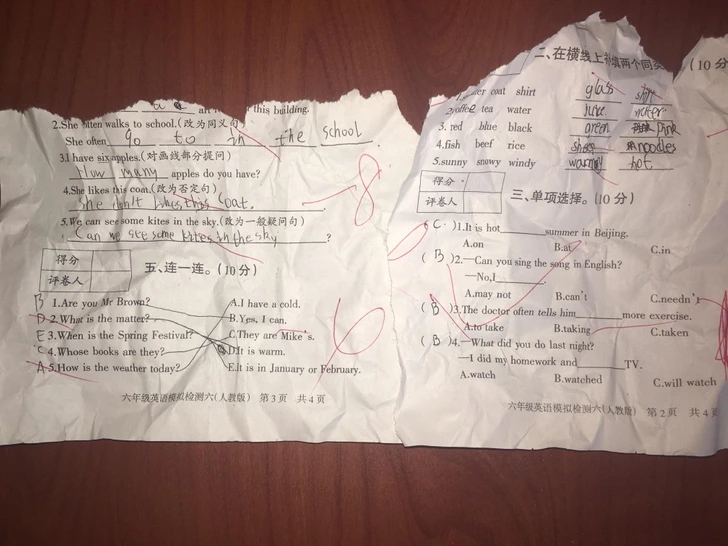 this building.
2.She often walks to school.(改为同义句)
She often go to in the school
3.I have six apples.(对画线部分提问)
How many apples do you have?
4.She likes this coat.(改为否定句)
She don't likes this coat.
5.We can see some kites in the sky.(改为一般疑问句)
Can we see some kites in the sky?
8
得分
评卷人
五、连一连。(10分)
B 1.Are you Mr Brown? A.I have a cold.
D 2.What is the matter? B.Yes, I can.
E 3.When is the Spring Festival? C.They are Mike's.
C 4.Whose books are they? D.It is warm.
A 5.How is the weather today? E.It is in January or February.
6
六年级英语模拟检测六(人教版) 第3页 共4页
二、在横线上补填两个同类 (10分
coat shirt glass
2.coffee tea water
3. red blue black green pink
4.fish beef rice noodles
5.sunny snowy windy hot
得分
评卷人
三、单项选择。(10分)
(C)1.It is hot summer in Beijing.
A.on B.at C.in
(B)2.—Can you sing the song in English?
—No,I
A.may not B.can't C.needn't
(B)3.The doctor often tells him more exercise.
A.to take B.taking C.taken
(B)4.—What did you do last night?
—I did my homework and TV.
A.watch B.watched C.will watch
六年级英语模拟检测六(人教版) 第2页 共4